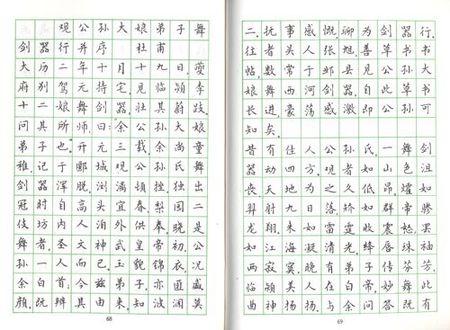 观公孙大娘弟子舞
剑器行并序 杜甫
大历二年十月十九日,夔
府别驾元持宅见临颍李
十二娘舞剑器,壮其蔚跂,
问其所师,曰:余公孙大娘
弟子也。开元三载,余尚童
稚,记于郾城观公孙氏舞
剑器浑脱,浏漓顿挫,独出
冠时,自高头宜春、梨园二
伎坊内人洎外供奉,晓是
舞者,圣文神武皇帝初,公
孙一人而已。玉貌锦衣,况
余白首,今兹弟子,亦匪盛
颜。既辨其由来,知波澜莫
68
二,抚事感慨,聊为剑器行。
往者吴人张旭,善草书书
帖,数常于邺县见公孙大
娘舞西河剑器,自此草书
长进,豪荡感激,即公孙可
知矣。
昔有佳人公孙氏,一舞剑
器动四方。观者如山色沮
丧,天地为之久低昂。燿如
羿射九日落,矫如群帝骖
龙翔。来如雷霆收震怒,罢
如江海凝清光。绛唇珠袖
两寂寞,晚有弟子传芬芳。
临颍美人在白帝,妙舞此
曲神扬扬。与余问答既有
69